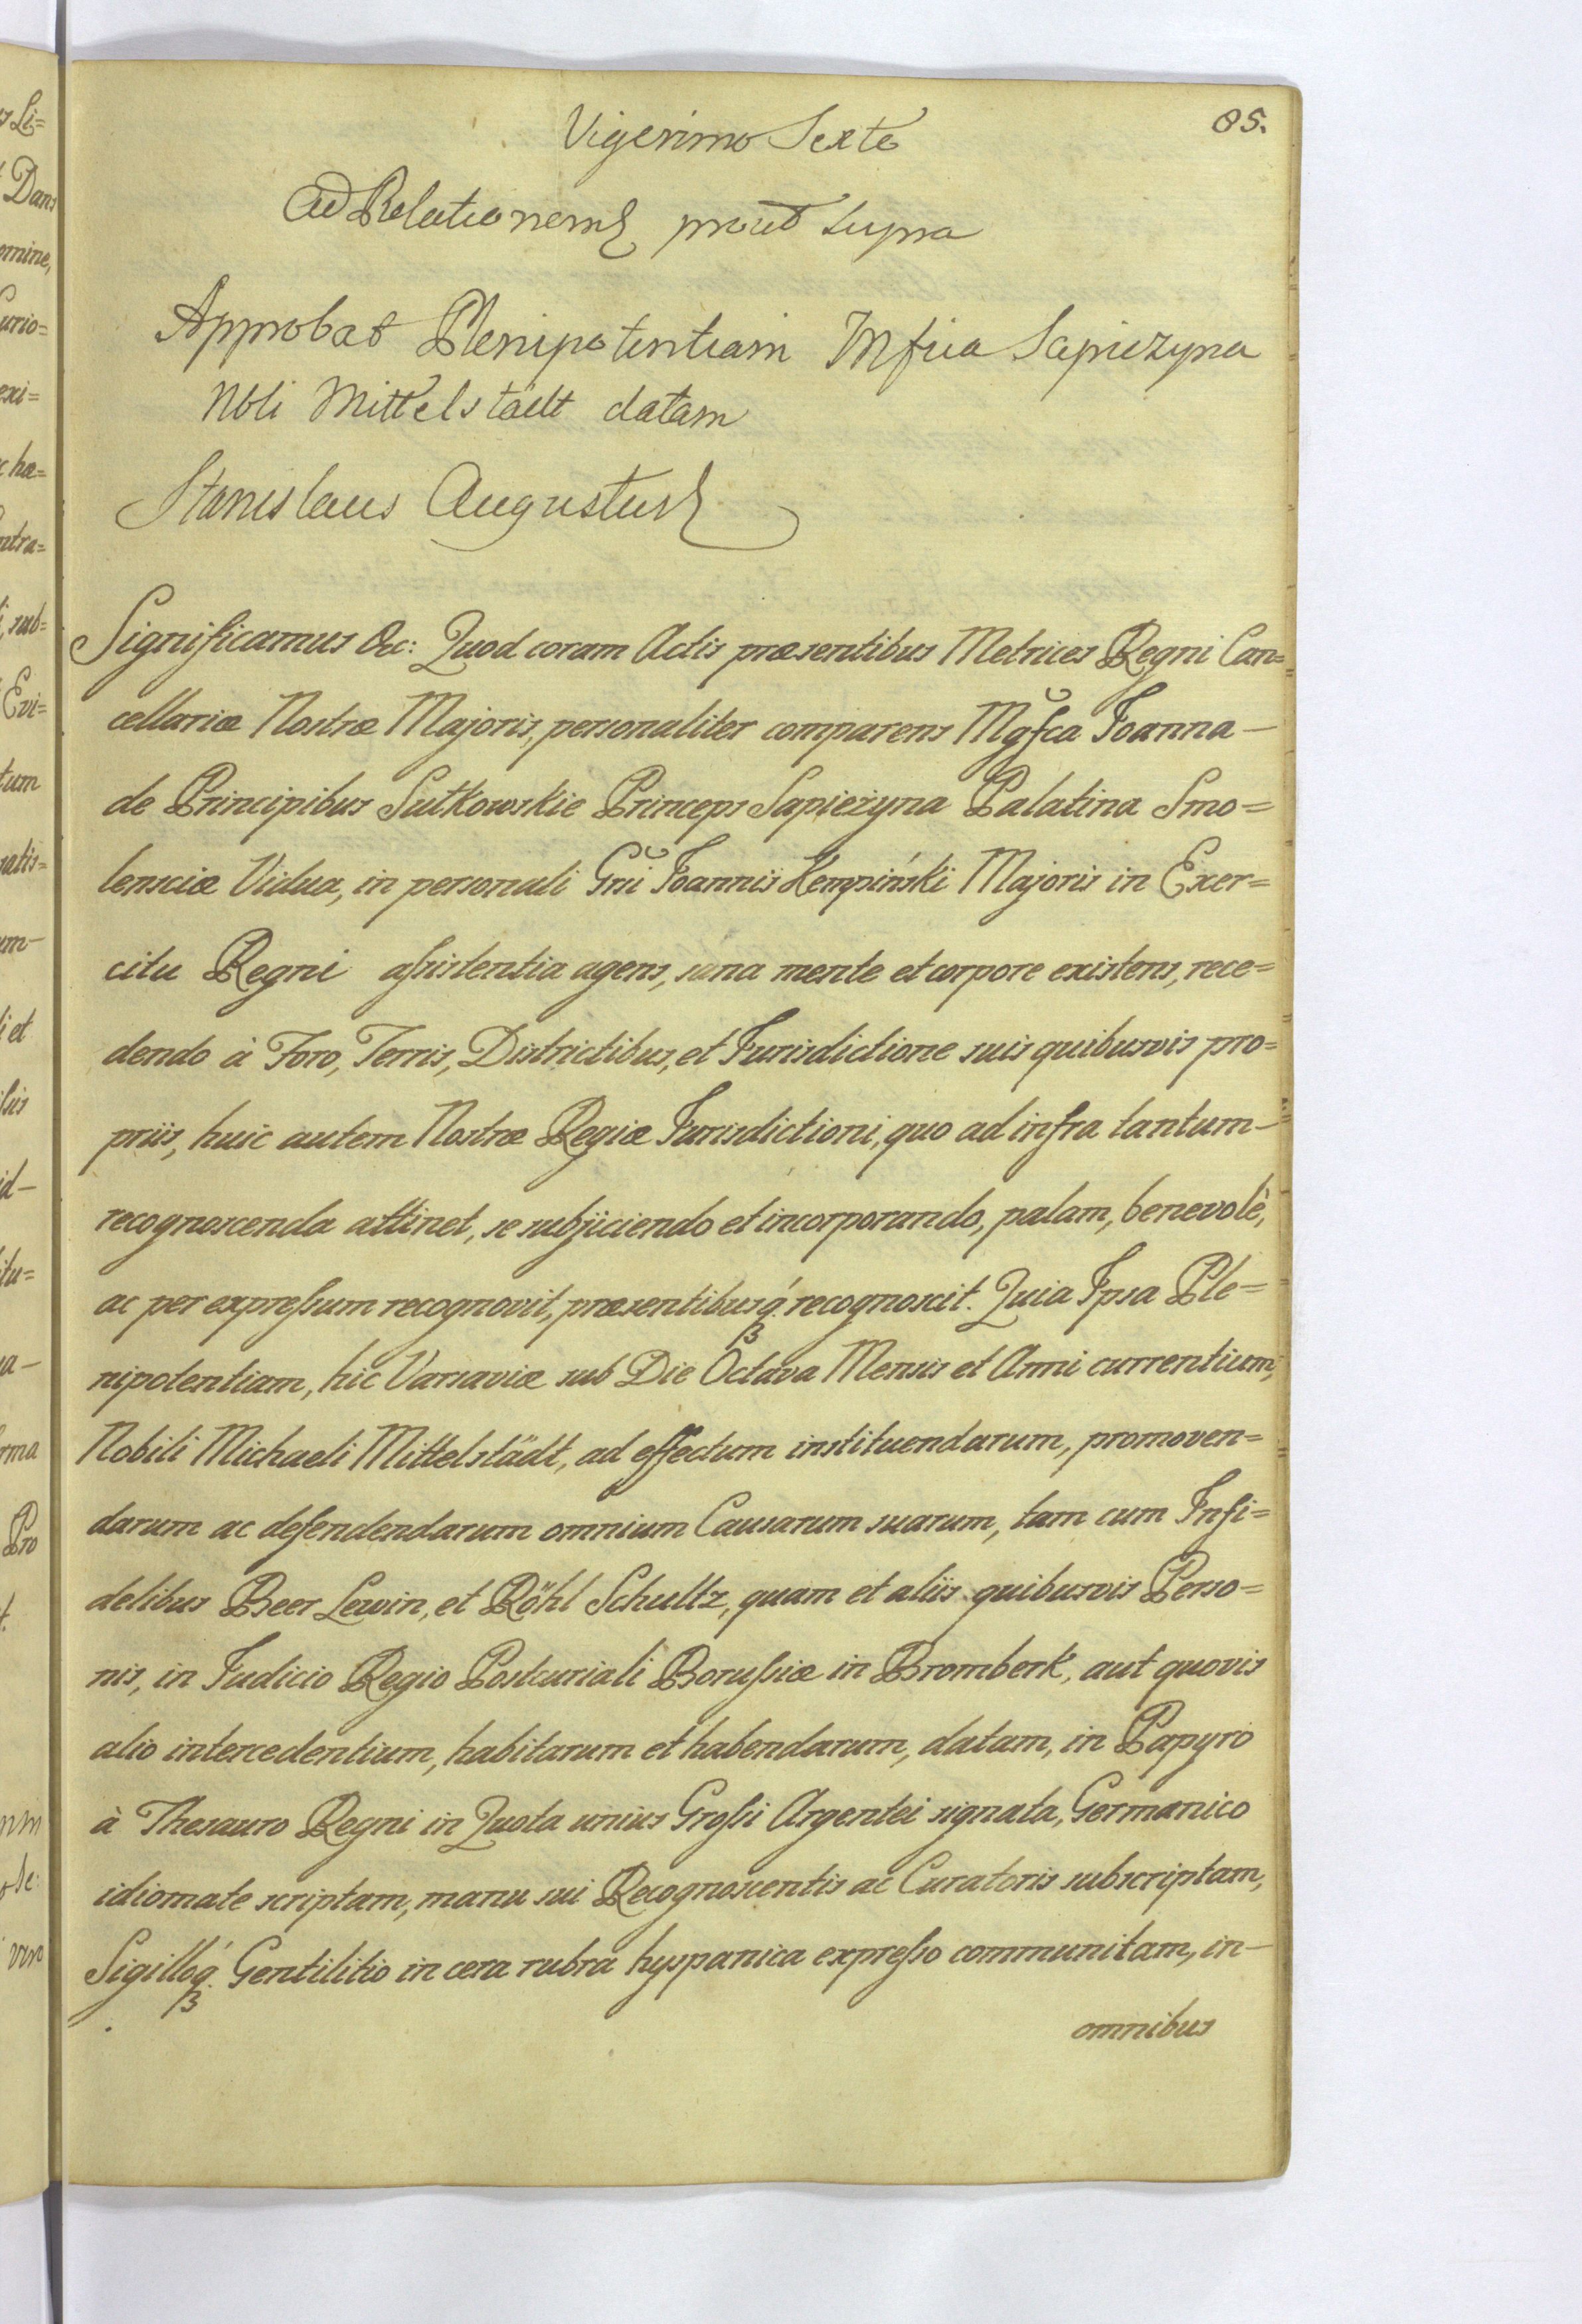 85.
Vigesimo Sexto
Ad Relationem prout supra
Approbat Plenipotentiam Mfica Sapiezyna
Nbli Mittelstädt datam
Stanislaus Augustus
Significamus &c: Quod coram Actis præsentibus Metrices Regni Can=
cellariæ Nostræ Majoris, personaliter comparens Mgfca Joanna —
de Principibus Sułkowskie Princeps Sapieżyna Palatina Smo=
lensciæ Vidua, in personali Gni Joannis Kempiński Majoris in Exer=
citu Regni assistentia agens, sana mente et corpore existens, rece=
dendo à Foro, Terris, Districtibus, et Jurisdictione suis quibusvis pro=
priis, huic autem Nostræ Regiæ Jurisdictioni, quo ad infra tantum —
recognoscenda attinet, se subjiciendo et incorporando, palam, benevolè,
ac per expressum recognovit, præsentibusq́ recognoscit. Quia Ipsa Ple=
nipotentiam, hic Varsaviæ sub Die Octava Mensis et Anni currentium,
Nobili Michaeli Mittelstädt, ad effectum instituendarum, promoven=
darum ac defendendarum omnium Causarum suarum, tam cum Infi=
delibus Beer Lewin, et Röhl Schultz, quam et aliis quibusvis Perso=
nis, in Judicio Regio Postcuriali Borussiæ in Bromberk, aut quovis
alio intercedentium, habitarum et habendarum, datam, in Papyro
à Thesauro Regni in Quota unius Grossi Argentei signata, Germanico
idiomate scriptam, manu sui Recognoscentis ac Curatoris subscriptam,
Sigilloq́ Gentilitio in cera rubra hyspanica expresso communitam, in —
omnibus